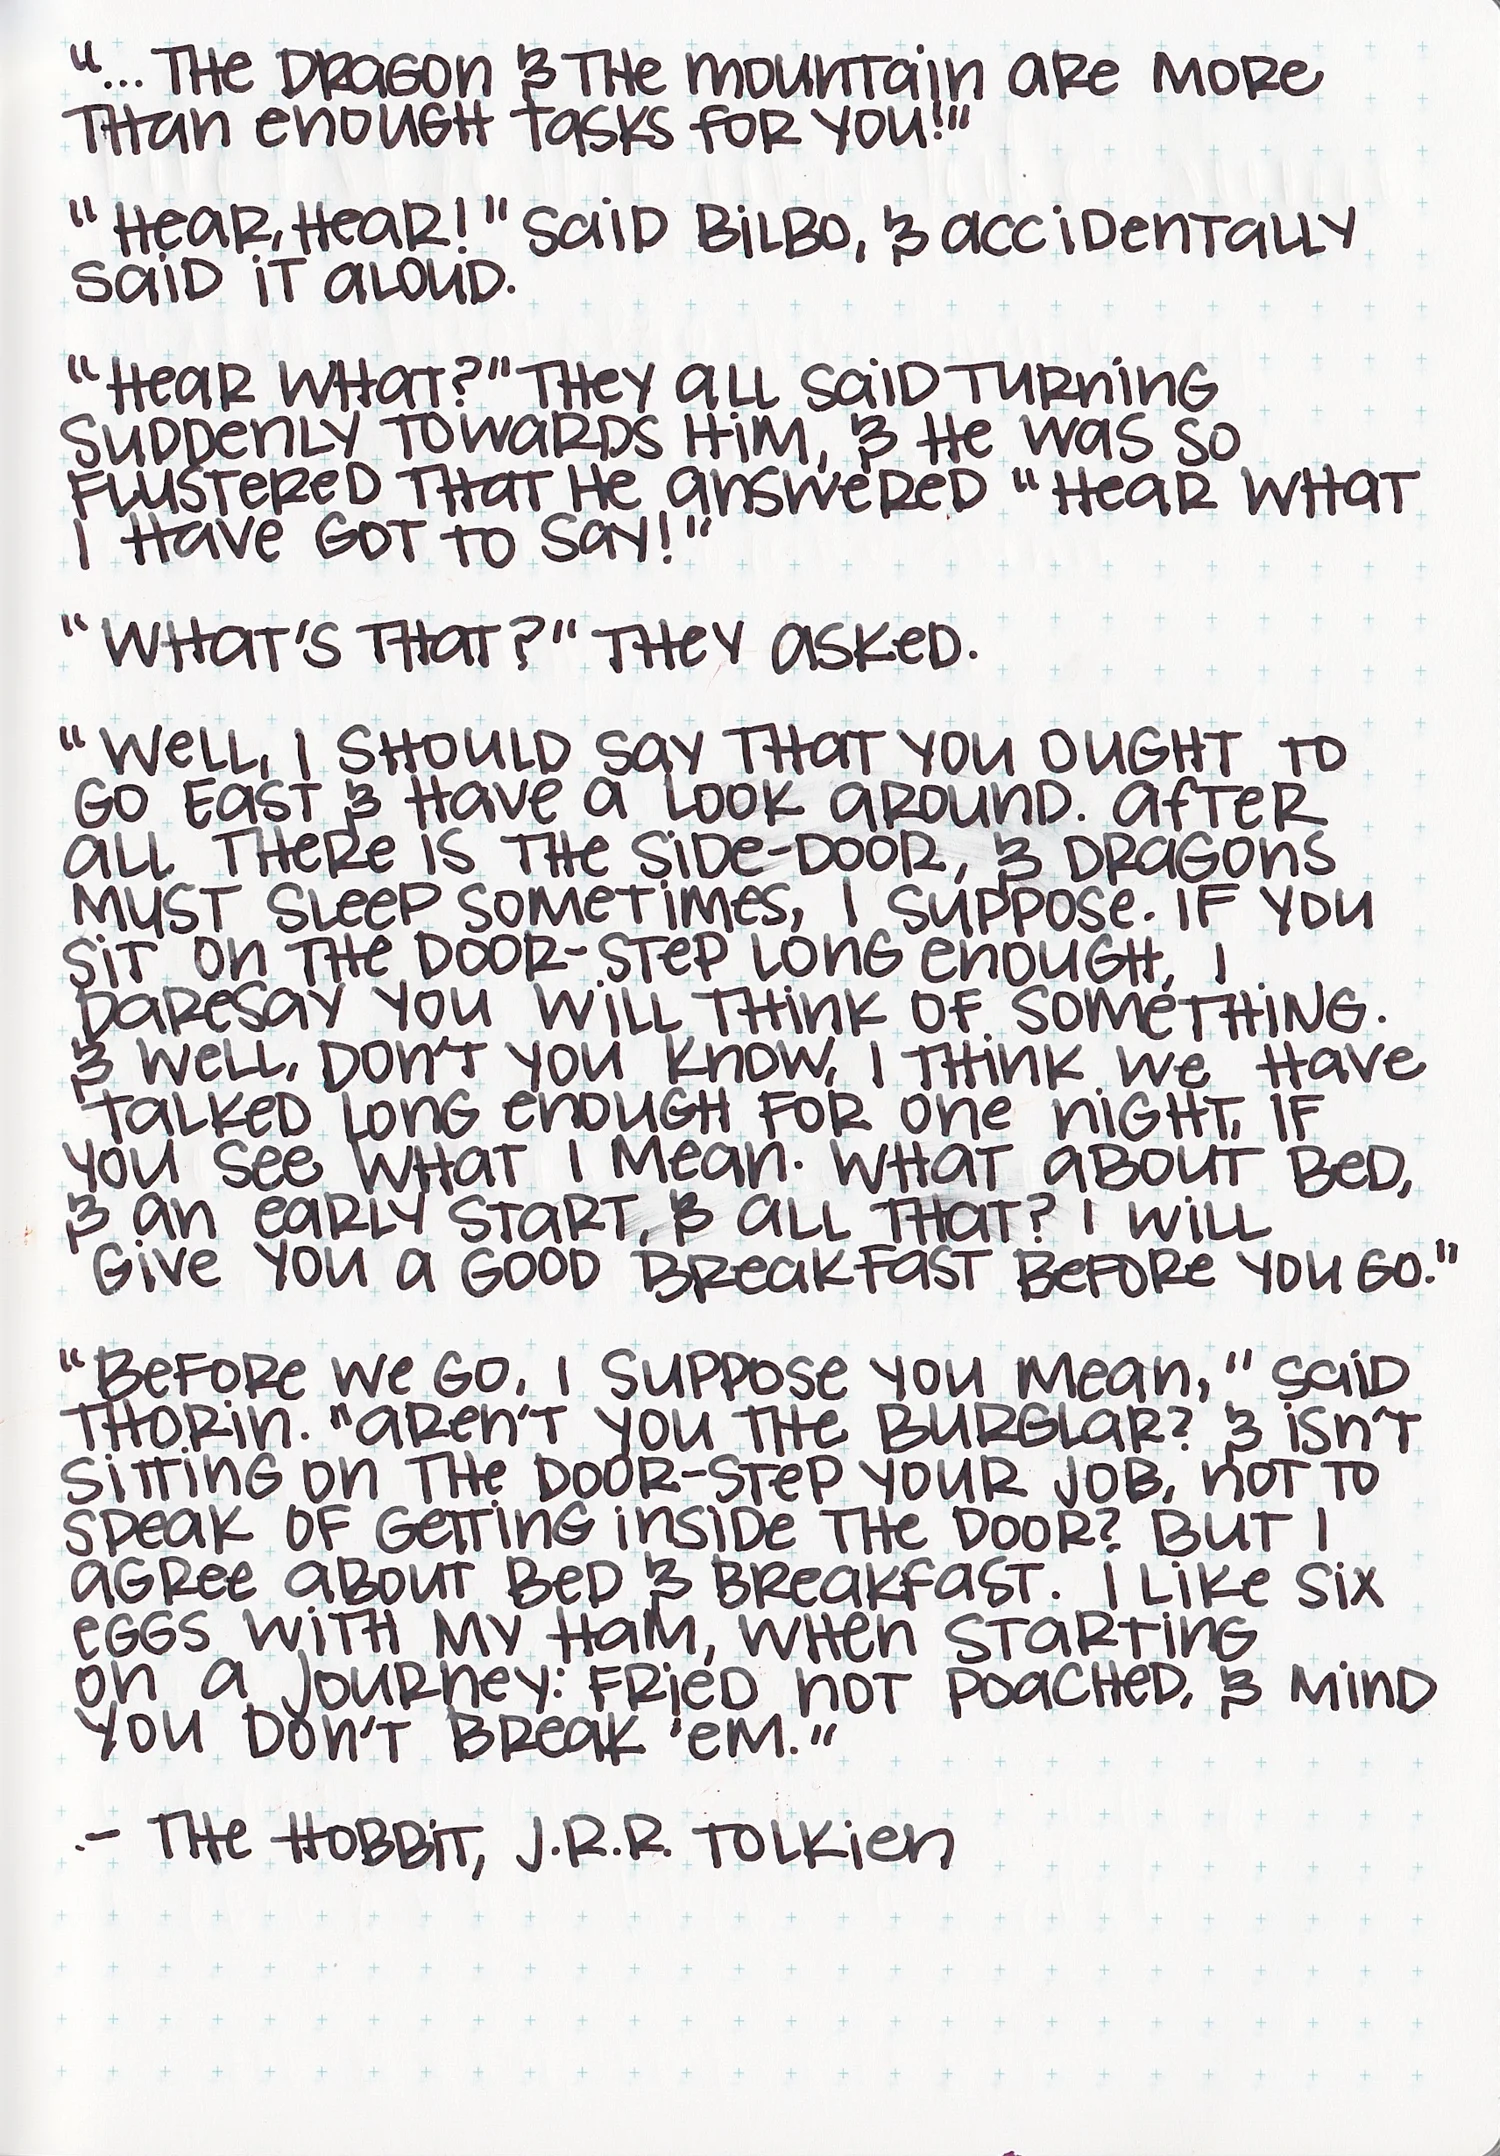 "... THE DRAGON & THE MOUNTAIN ARE MORE
THAN ENOUGH TASKS FOR YOU!"
"HEAR, HEAR!" SAID BILBO, & ACCIDENTALLY
SAID IT ALOUD.
"HEAR WHAT?" THEY ALL SAID TURNING
SUDDENLY TOWARDS HIM, & HE WAS SO
FLUSTERED THAT HE ANSWERED "HEAR WHAT
I HAVE GOT TO SAY!"
"WHAT'S THAT?" THEY ASKED.
"WELL, I SHOULD SAY THAT YOU OUGHT TO
GO EAST & HAVE A LOOK AROUND. AFTER
ALL THERE IS THE SIDE-DOOR, & DRAGONS
MUST SLEEP SOMETIMES, I SUPPOSE. IF YOU
SIT ON THE DOOR-STEP LONG ENOUGH, I
DARESAY YOU WILL THINK OF SOMETHING.
& WELL, DON'T YOU KNOW, I THINK WE HAVE
TALKED LONG ENOUGH FOR ONE NIGHT, IF
YOU SEE WHAT I MEAN. WHAT ABOUT BED,
& AN EARLY START, & ALL THAT? I WILL
GIVE YOU A GOOD BREAKFAST BEFORE YOU GO."
"BEFORE WE GO, I SUPPOSE YOU MEAN," SAID
THORIN. "AREN'T YOU THE BURGLAR? & ISN'T
SITTING ON THE DOOR-STEP YOUR JOB, NOT TO
SPEAK OF GETTING INSIDE THE DOOR? BUT I
AGREE ABOUT BED & BREAKFAST. I LIKE SIX
EGGS WITH MY HAM, WHEN STARTING
ON A JOURNEY: FRIED NOT POACHED, & MIND
YOU DON'T BREAK 'EM."
- THE HOBBIT, J.R.R. TOLKIEN